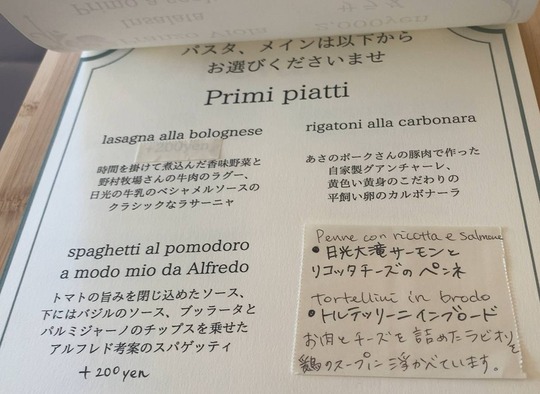 Primo
Insalata
2.000yen
パスタ、メインは以下から
お選びくださいませ
Primi piatti
lasagna alla bolognese
+200yen
時間を掛けて煮込んだ香味野菜と
野村牧場さんの牛肉のラグー、
日光の牛乳のベシャメルソースの
クラシックなラサーニャ
rigatoni alla carbonara
あさのポークさんの豚肉で作った
自家製グアンチャーレ、
黄色い黄身のこだわりの
平飼い卵のカルボナーラ
spaghetti al pomodoro
a modo mio da Alfredo
トマトの旨みを閉じ込めたソース、
下にはバジルのソース、ブッラータと
パルミジャーノのチップスを乗せた
アルフレド考案のスパゲッティ
+200yen
Penne con ricotta e salmone
•日光大滝サーモンと
リコッタチーズのペンネ
tortellini in brodo
•トルテッリーニインブロード
お肉とチーズを詰めたラビオリを
鶏のスープに浮かべています。